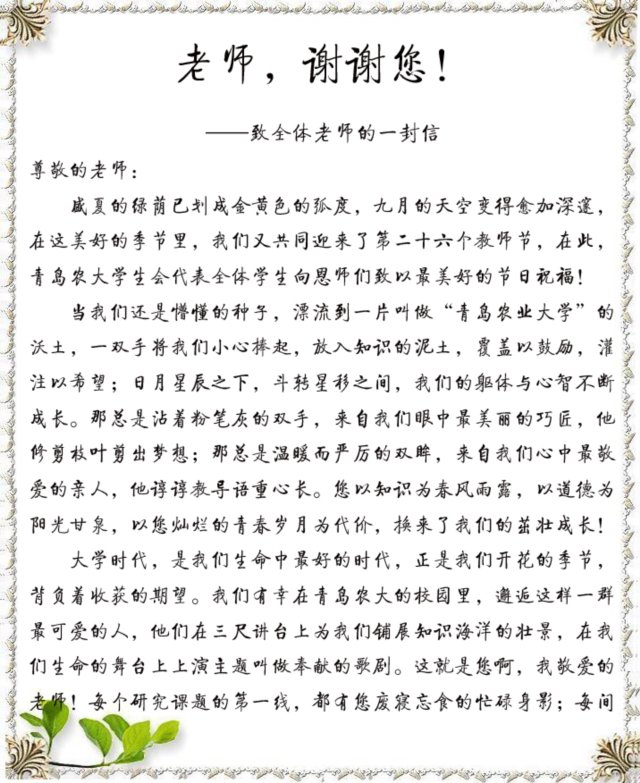 老师，谢谢您！
——致全体老师的一封信
尊敬的老师：
盛夏的绿荫已划成金黄色的弧度，九月的天空变得愈加深邃，
在这美好的季节里，我们又共同迎来了第二十六个教师节，在此，
青岛农大学生会代表全体学生向恩师们致以最美好的节日祝福！
当我们还是懵懂的种子，漂流到一片叫做“青岛农业大学”的
沃土，一双手将我们小心捧起，放入知识的泥土，覆盖以鼓励，灌
注以希望；日月星辰之下，斗转星移之间，我们的躯体与心智不断
成长。那总是沾着粉笔灰的双手，来自我们眼中最美丽的巧匠，他
修剪枝叶剪出梦想；那总是温暖而严厉的双眸，来自我们心中最敬
爱的亲人，他谆谆教导语重心长。您以知识为春风雨露，以道德为
阳光甘泉，以您灿烂的青春岁月为代价，换来了我们的茁壮成长！
大学时代，是我们生命中最好的时代，正是我们开花的季节，
背负着收获的期望。我们有幸在青岛农大的校园里，邂逅这样一群
最可爱的人，他们在三尺讲台上为我们铺展知识海洋的壮景，在我
们生命的舞台上上演主题叫做奉献的歌剧。这就是您啊，我敬爱的
老师！每个研究课题的第一线，都有您废寝忘食的忙碌身影；每间